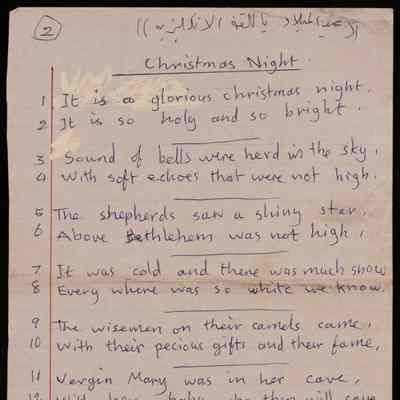 2
((عيد الميلاد باللغة الانكليزية))
Christmas Night.
1 It is a glorious christmas night.
2 It is so holy and so bright.
3 Sound of bells were herd in the sky,
4 With soft echoes that were not high.
5 The shepherds saw a shiny star,
6 Above Bethlehem was not high,
7 It was cold and there was much show
8 Every where was so white we know.
9 The wisemen on their camels came,
10 With their pecious gifts and their fame,
11 Vergin Mary was in her cave,
12